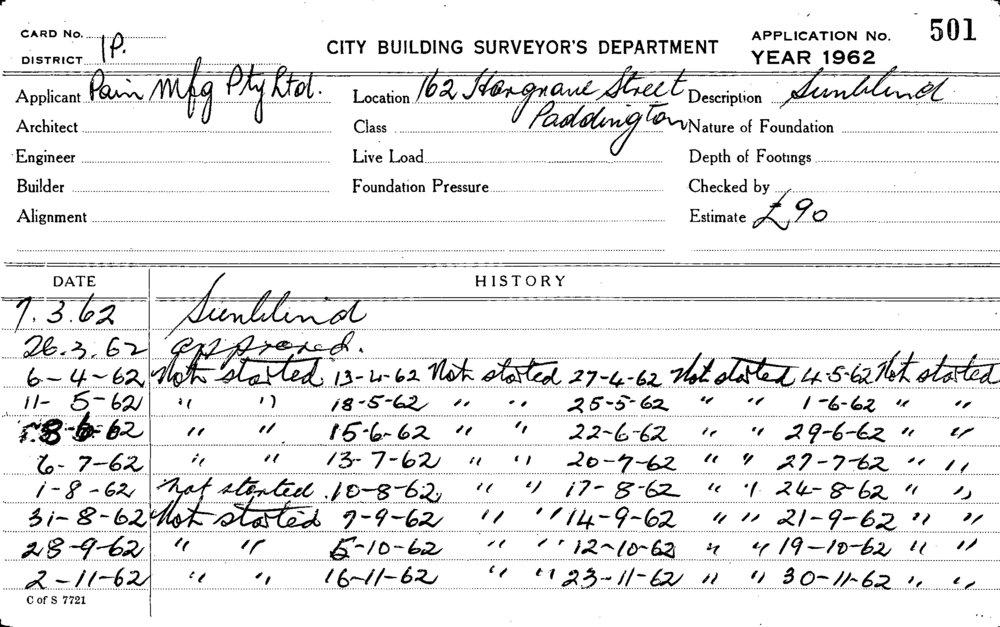 CARD No.
DISTRICT 1P.
CITY BUILDING SURVEYOR'S DEPARTMENT
APPLICATION No. 501
YEAR 1962
Applicant Pain Mfg Pty Ltd. Location 162 Hargrave Street Description Sunblind
Paddington
Architect Class Nature of Foundation
Engineer Live Load Depth of Footings
Builder Foundation Pressure Checked by
Alignment Estimate £90
DATE HISTORY
7.3.62 Sunblind
26.3.62 approved.
6-4-62 Not started 13-4-62 Not started 27-4-62 Not started 4-5-62 Not started
11-5-62 " " 18-5-62 " " 25-5-62 " " 1-6-62 " "
8-6-62 " " 15-6-62 " " 22-6-62 " " 29-6-62 " "
6-7-62 " " 13-7-62 " " 20-7-62 " " 27-7-62 " "
1-8-62 not started 10-8-62 " " 17-8-62 " " 24-8-62 " "
31-8-62 Not started 7-9-62 " " 14-9-62 " " 21-9-62 " "
28-9-62 " " 5-10-62 " " 12-10-62 " " 19-10-62 " "
2-11-62 " " 16-11-62 " " 23-11-62 " " 30-11-62 " "
C of S 7721